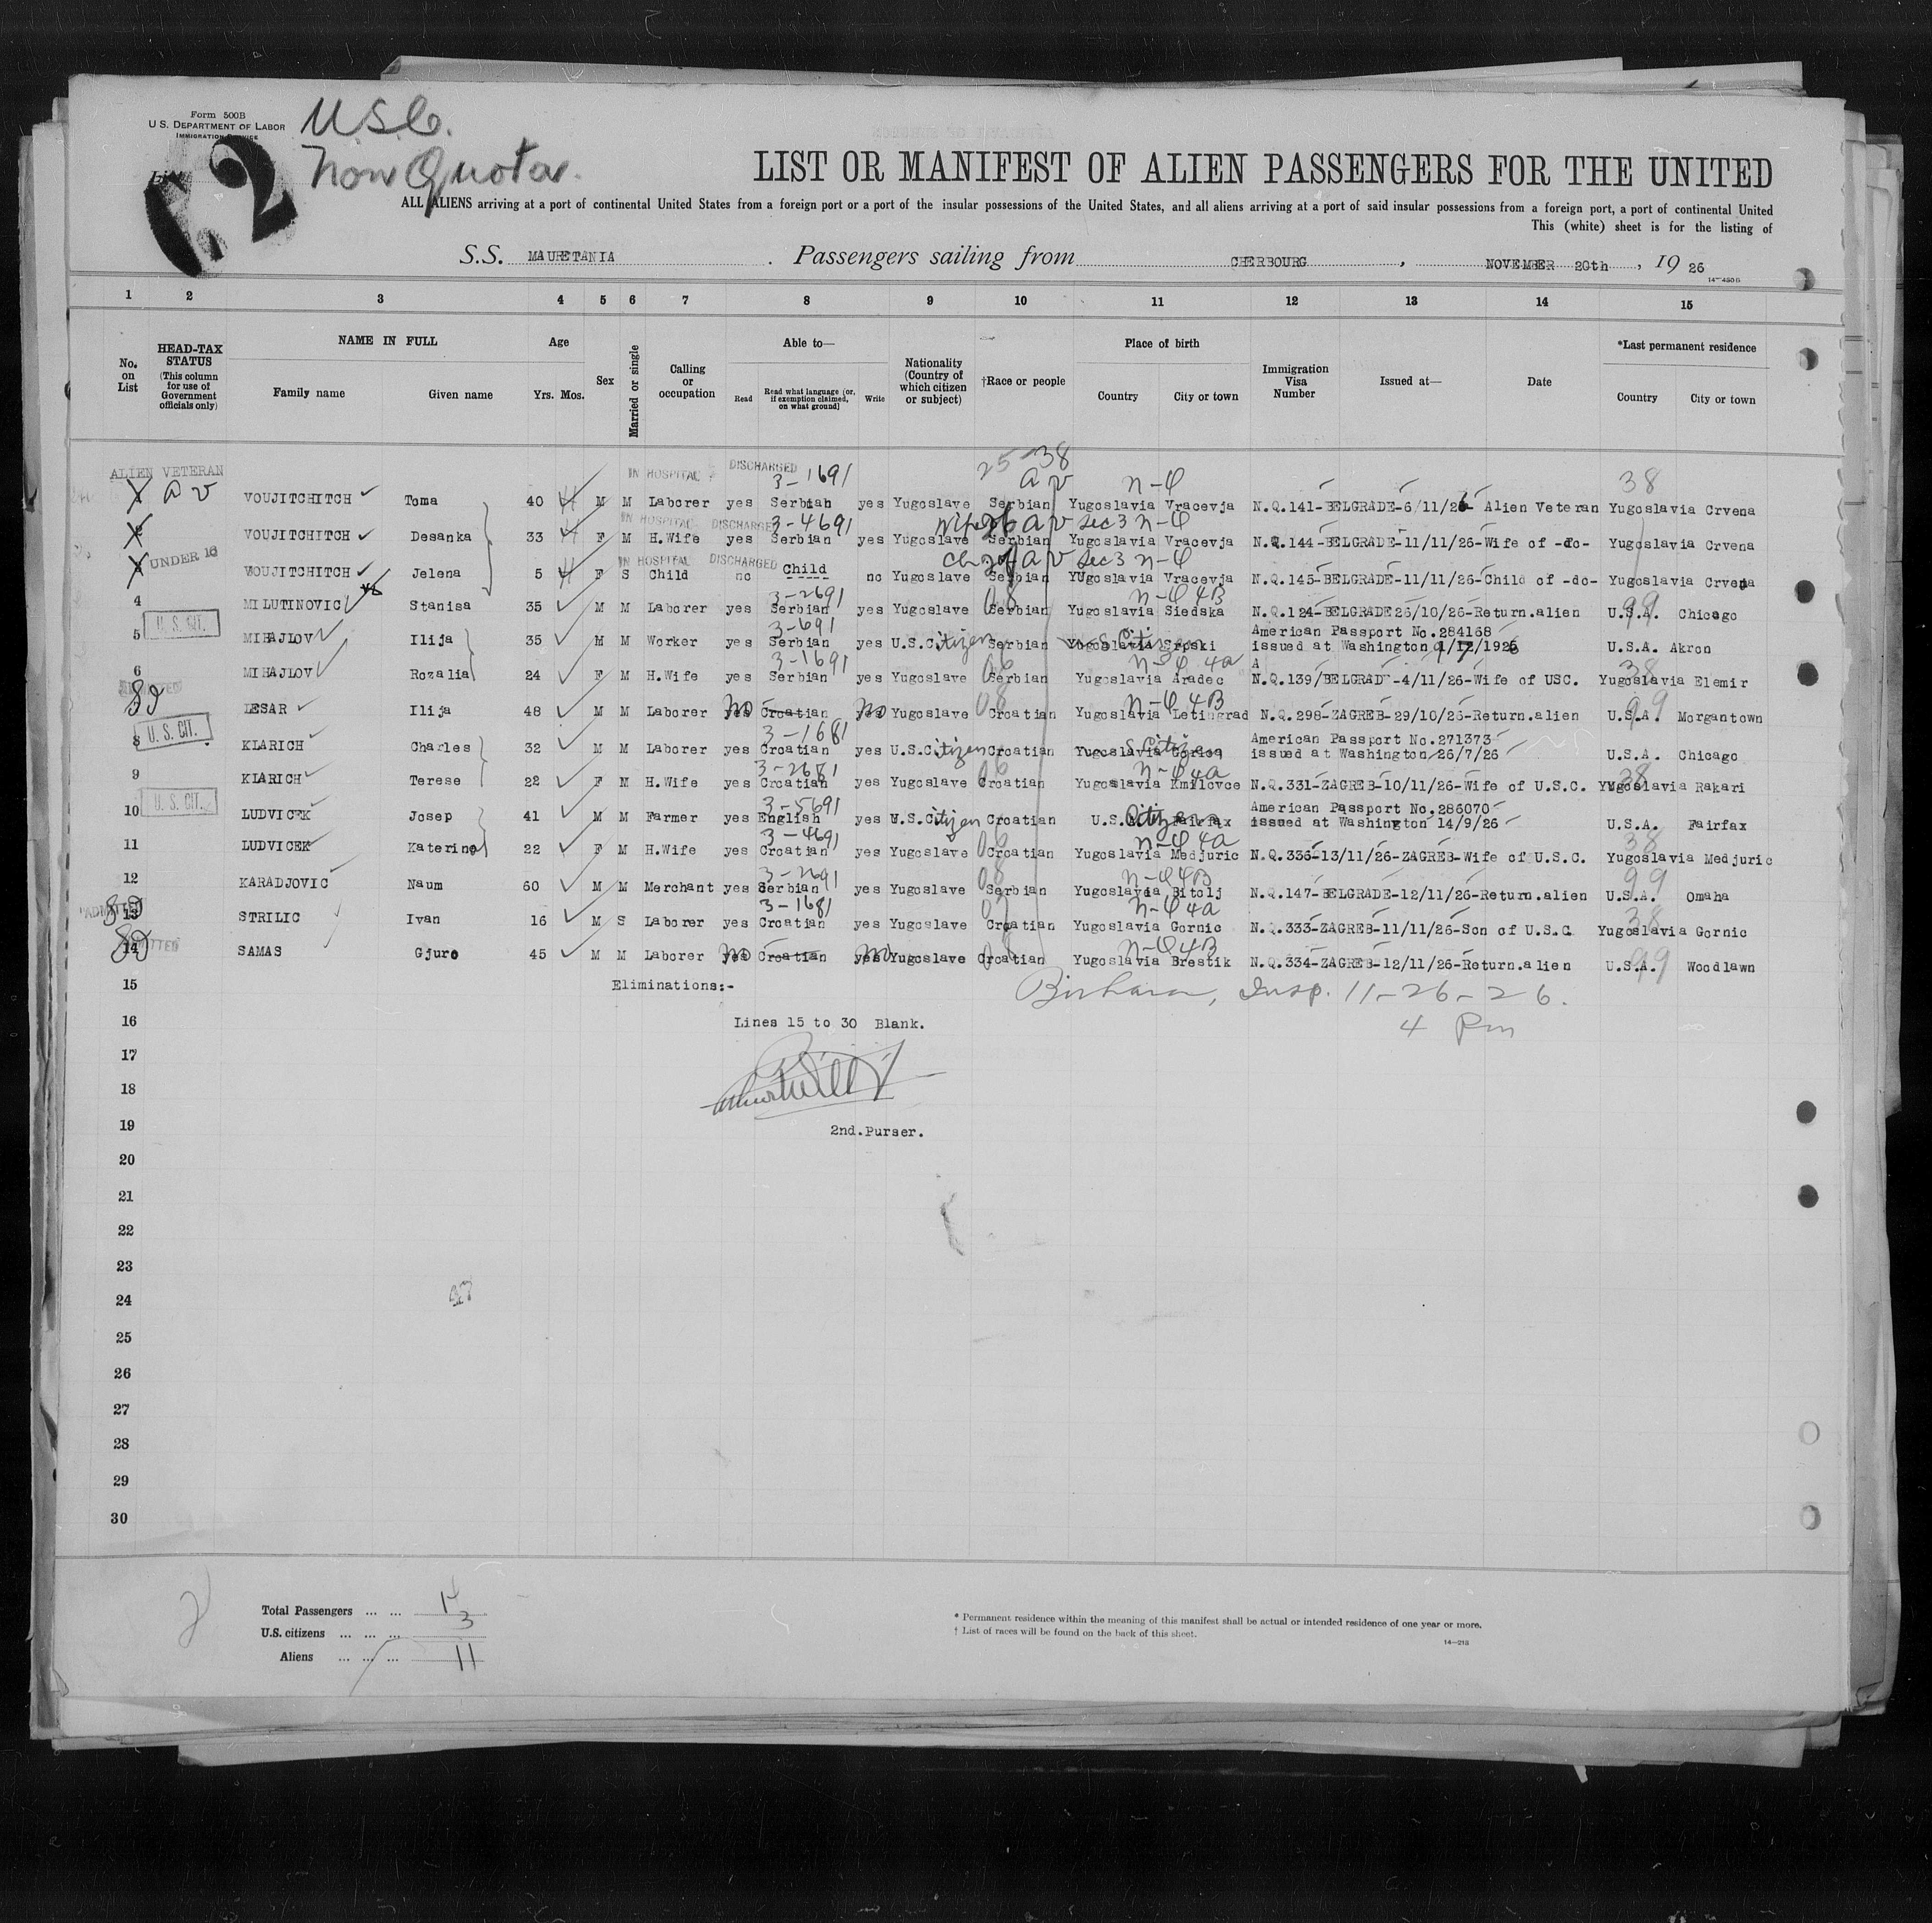 Form 500B
U.S. DEPARTMENT OF LABOR
IMMIGRATION SERVICE
U.S.C.
Non Quota.
72
LIST OR MANIFEST OF ALIEN PASSENGERS FOR THE UNITED
ALL ALIENS arriving at a port of continental United States from a foreign port or a port of the insular possessions of the United States, and all aliens arriving at a port of said insular possessions from a foreign port, a port of continental United
This (white) sheet is for the listing of
S.S. MAURETANIA . Passengers sailing from CHERBOURG , NOVEMBER 20th , 19 26
1 2 3 4 5 6 7 8 9 10 11 12 13 14 15
No. on List
HEAD-TAX STATUS (This column for use of Government officials only)
NAME IN FULL Family name Given name
Age Yrs. Mos.
Sex
Married or single
Calling or occupation
Able to— Read Read what language [or, if exemption claimed, on what ground] Write
Nationality (Country of which citizen or subject)
†Race or people
Place of birth Country City or town
Immigration Visa Number
Issued at—
Date
*Last permanent residence Country City or town
ALIEN VETERAN IN HOSPITAL DISCHARGED 3-1691 25-38 av n-q 38
av VOUJITCHITCH Toma 40 M M Laborer yes Serbian yes Yugoslave Serbian Yugoslavia Vracevja N.Q.141-BELGRADE-6/11/26 Alien Veteran Yugoslavia Crvena
IN HOSPITAL DISCHARGED 3-4691 Wife of av Sec 3 n-q
VOUJITCHITCH Desanka 33 F M H.Wife yes Serbian yes Yugoslave Serbian Yugoslavia Vracevja N.Q.144-BELGRADE-11/11/26-Wife of -do- Yugoslavia Crvena
UNDER 16 IN HOSPITAL DISCHARGED Ch. of av Sec 3 n-q
VOUJITCHITCH Jelena 5 F S Child no Child no Yugoslave Serbian Yugoslavia Vracevja N.Q.145-BELGRADE-11/11/26-Child of -do- Yugoslavia Crvena
3-2691 08 n-q 4B 99
4 MILUTINOVIC Stanisa 35 M M Laborer yes Serbian yes Yugoslave Serbian Yugoslavia Siedska N.Q.124-BELGRADE 26/10/26-Return.alien U.S.A. Chicago
U. S. CIT. 3-691 American Passport No.284168
5 MIHAJLOV Ilija 35 M M Worker yes Serbian yes U.S.Citizen Serbian Yugoslavia Srpski issued at Washington 1/7/1926 U.S.A. Akron
3-1691 06 n-q 4a 38
6 MIHAJLOV Rozalia 24 F M H.Wife yes Serbian yes Yugoslave Serbian Yugoslavia Aradec N.Q.139/BELGRAD -4/11/26-Wife of USC. Yugoslavia Elemir
no no 08 n-q 4B 99
LESAR Ilija 48 M M Laborer yes Croatian yes Yugoslave Croatian Yugoslavia Letingrad N.Q.298-ZAGREB-29/10/26-Return.alien U.S.A. Morgantown
U. S. CIT. 3-1681 American Passport No.271373
8 KLARICH Charles 32 M M Laborer yes Croatian yes U.S.Citizen Croatian Yugoslavia issued at Washington 26/7/26 U.S.A. Chicago
3-2681 06 n-q 4a 38
9 KLARICH Terese 22 F M H.Wife yes Croatian yes Yugoslave Croatian Yugoslavia Kmilovce N.Q.331-ZAGREB-10/11/26-Wife of U.S.C. Yugoslavia Rakari
U. S. CIT. 3-5691 American Passport No.286070
10 LUDVICEK Josep 41 M M Farmer yes English yes U.S.Citizen Croatian U.S. Citizen Fairfax issued at Washington 14/9/26 U.S.A. Fairfax
3-4691 06 n-q 4a 38
11 LUDVICEK Katerine 22 F M H.Wife yes Croatian yes Yugoslave Croatian Yugoslavia Medjuric N.Q.336-13/11/26-ZAGREB-Wife of U.S.C. Yugoslavia Medjuric
3-2691 08 n-q 4B 99
12 KARADJOVIC Naum 60 M M Merchant yes Serbian yes Yugoslave Serbian Yugoslavia Bitolj N.Q.147-BELGRADE-12/11/26-Return.alien U.S.A. Omaha
ADMITTED 3-1681 07 n-q 4a 38
13 STRILIC Ivan 16 M S Laborer yes Croatian yes Yugoslave Croatian Yugoslavia Gornic N.Q.333-ZAGREB-11/11/26-Son of U.S.C Yugoslavia Gornic
ADMITTED no no 08 n-q 4B 99
14 SAMAS Gjuro 45 M M Laborer yes Croatian yes Yugoslave Croatian Yugoslavia Brestik N.Q.334-ZAGREB-12/11/26-Return.alien U.S.A. Woodlawn
15 Eliminations:- Insp. 11-26-26.
16 Lines 15 to 30 Blank. 4 Pm
17
18
19 2nd.Purser.
20
21
22
23
24
25
26
27
28
29
30
Total Passengers ... ... 14
U.S. citizens ... ... ... 3
Aliens ... ... ... 11
* Permanent residence within the meaning of this manifest shall be actual or intended residence of one year or more.
† List of races will be found on the back of this sheet.
14—213